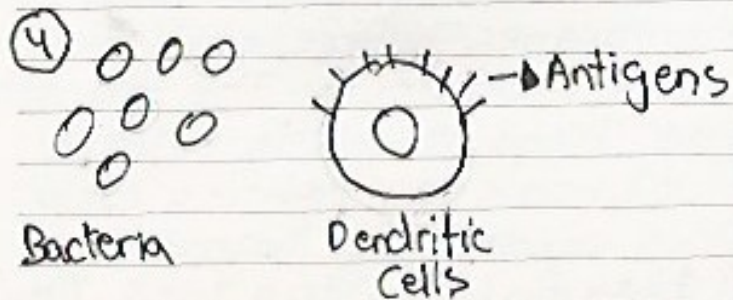 4
Antigens
Bacteria
Dendritic
Cells